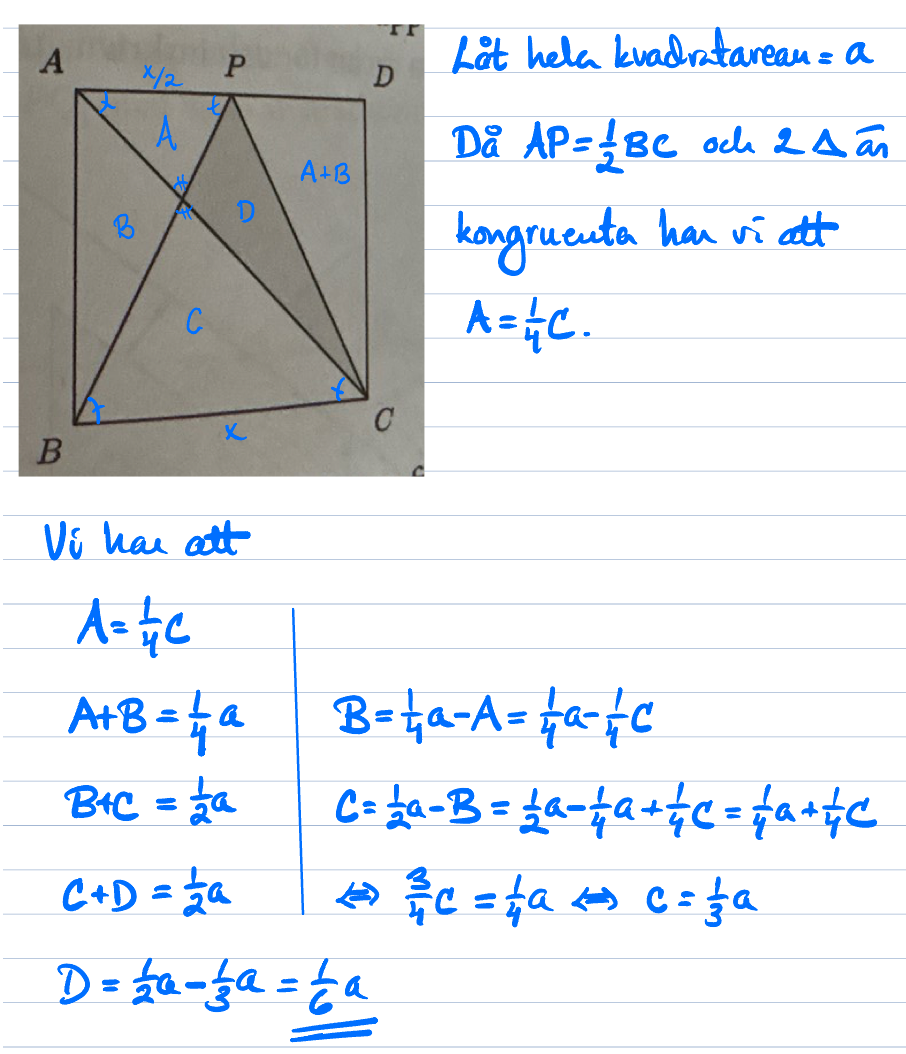 "PP
A x/2 P D
A
A+B
B D
C
x C
B
Låt hela kvadratarean = a
Då AP = 1/2 BC och 2 Δ är
kongruenta har vi att
A = 1/4 C.
Vi har att
A = 1/4 C
A+B = 1/4 a
B = 1/4 a - A = 1/4 a - 1/4 C
B+C = 1/2 a
C = 1/2 a - B = 1/2 a - 1/4 a + 1/4 C = 1/4 a + 1/4 C
C+D = 1/2 a
⇔ 3/4 C = 1/4 a ⇔ C = 1/3 a
D = 1/2 a - 1/3 a = 1/6 a